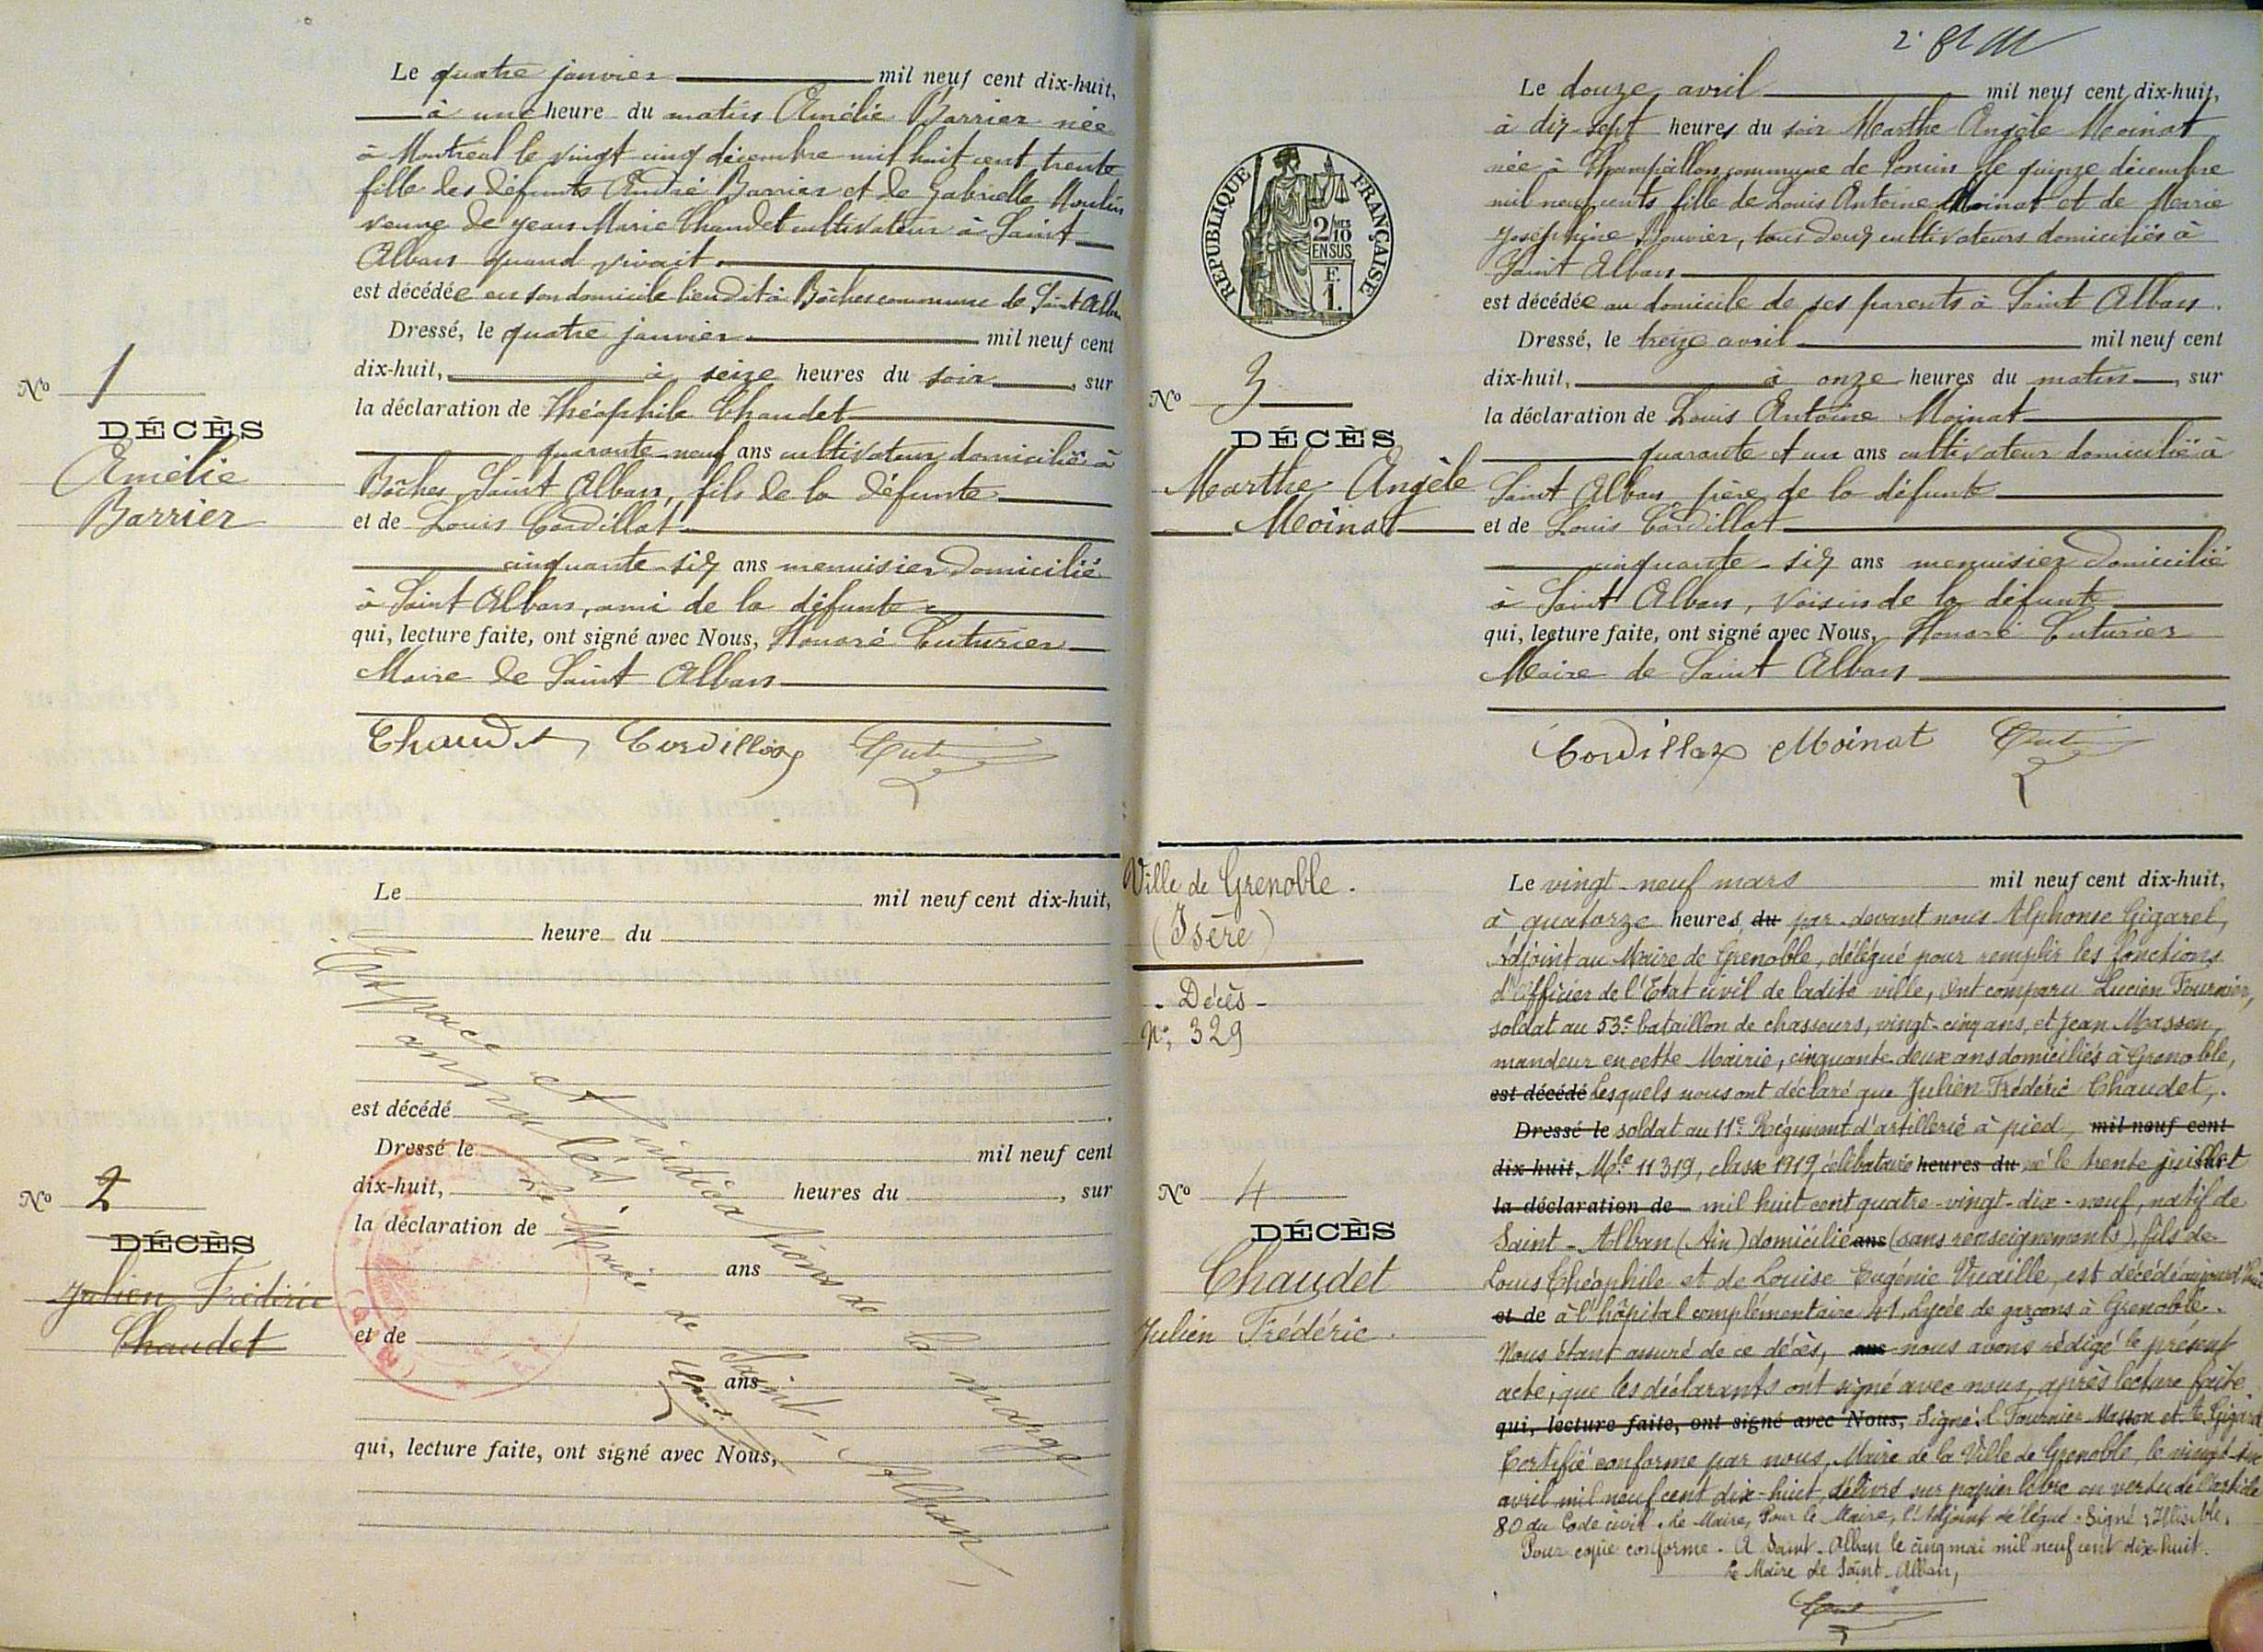 Le quatre janvier mil neuf cent dix-huit,
à une heure du matin Amélie Barrier née
à Montréal le vingt cinq décembre mil huit cent trente
fille des défunts André Barrier et de Gabrielle Moulin
veuve de Jean Marie Chaudet cultivateur à Saint
Alban quand vivait.
est décédée en son domicile lieu dit à Bôches commune de Saint Alban
Dressé, le quatre janvier mil neuf cent
dix-huit, à seize heures du soir, sur
la déclaration de Théophile Chaudet
quarante-neuf ans cultivateur domicilié à
Bôches, Saint Alban, fils de la défunte
et de Louis Cordillot
cinquante-six ans menuisier domicilié
à Saint Alban, ami de la défunte
qui, lecture faite, ont signé avec Nous, Honoré Cuturier
Maire de Saint Alban
Chaudet Cordillot Cut
No 1
DÉCÈS
Amélie
Barrier
Le mil neuf cent dix-huit,
heure du
est décédé
Dressé le mil neuf cent
dix-huit, heures du , sur
la déclaration de
ans
et de
ans
qui, lecture faite, ont signé avec Nous,
Espace et indications de la marge
annulés
Le Maire de Saint-Alban
No 2
DÉCÈS
Julien Frédéric
Chaudet
2
Le douze avril mil neuf cent dix-huit,
à dix-sept heures du soir Marthe Angèle Moinat
née à Champeillon commune de Poncin le quinze décembre
mil neuf cents fille de Louis Antoine Moinat et de Marie
Joséphine Bouvier, tous deux cultivateurs domiciliés à
Saint Alban
est décédée au domicile de ses parents à Saint Alban.
Dressé, le treize avril mil neuf cent
dix-huit, à onze heures du matin, sur
la déclaration de Louis Antoine Moinat
quarante et un ans cultivateur domicilié à
Saint Alban, père de la défunte
et de Louis Cordillot
cinquante-six ans menuisier domicilié
à Saint Alban, voisin de la défunte
qui, lecture faite, ont signé avec Nous, Honoré Cuturier
Maire de Saint Alban
Cordillot Moinat Cut
RÉPUBLIQUE FRANÇAISE
2/10
EN SUS
F.
1.
No 3
DÉCÈS
Marthe Angèle
Moinat
Ville de Grenoble.
(Isère)
- Décès -
No, 329
No 4
DÉCÈS
Chaudet
Julien Frédéric.
Le vingt-neuf mars mil neuf cent dix-huit,
à quatorze heures, du par-devant nous Alphonse Gigarel,
Adjoint au Maire de Grenoble, délégué pour remplir les fonctions
d'Officier de l'Etat civil de ladite ville, Ont comparu Lucien Fournier,
soldat au 53e bataillon de chasseurs, vingt-cinq ans, et Jean Masson,
mandeur en cette Mairie, cinquante-deux ans domiciliés à Grenoble,
est décédé lesquels nous ont déclaré que Julien Frédéric Chaudet,
Dressé le soldat au 11e Régiment d'artillerie à pied, mil neuf cent
dix-huit, Mle 11319, classe 1919, célibataire heures du né le trente juillet
la déclaration de mil huit cent quatre-vingt-dix-neuf, natif de
Saint-Alban (Ain) domicilié ans (sans renseignements), fils de
Louis Théophile et de Louise Eugénie Vuaille, est décédé aujourd'hui
et de à l'hôpital complémentaire 41, Lycée de garçons à Grenoble.
Nous étant assuré de ce décès, ans nous avons rédigé le présent
acte, que les déclarants ont signé avec nous, après lecture faite.
qui, lecture faite, ont signé avec Nous, Signé: L Fournier Masson et
Certifié conforme par nous, Maire de la Ville de Grenoble, le vingt-six
avril mil neuf cent dix-huit, délivré sur papier libre en vertu de l'article
80 du Code civil. Le Maire, Pour le Maire, l'Adjoint délégué. Signé: Illisible.
Pour copie conforme. A Saint-Alban le cinq mai mil neuf cent dix-huit.
Le Maire de Saint-Alban,